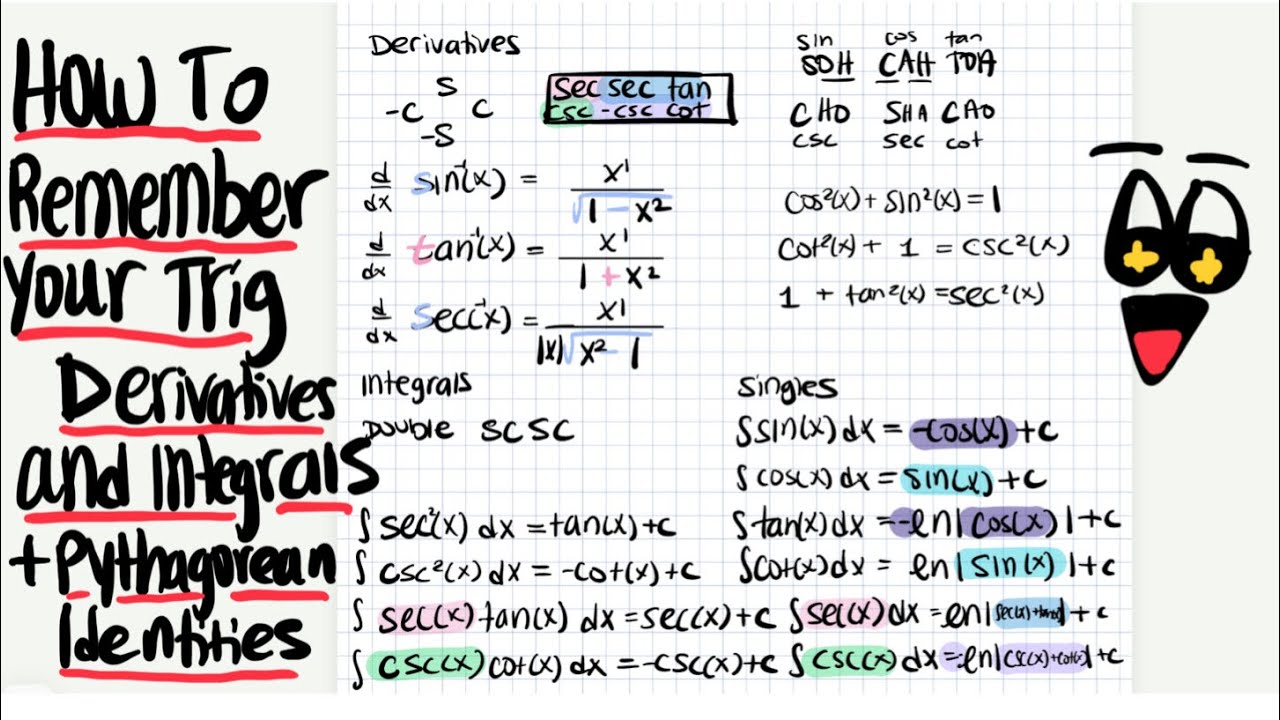 How To
Remember
your Trig
Derivatives
and Integrals
+ Pythagorean
Identities
Derivatives
S
-C C
-S
sec sec tan
csc -csc cot
sin cos tan
SOH CAH TOA
CHO SHA CAO
csc sec cot
d/dx sin⁻¹(x) = x'/√(1 - x²)
d/dx tan⁻¹(x) = x'/(1 + x²)
d/dx sec⁻¹(x) = x'/(|x|√(x² - 1))
cos²(x) + sin²(x) = 1
cot²(x) + 1 = csc²(x)
1 + tan²(x) = sec²(x)
Integrals
Double SCSC
∫ sec²(x) dx = tan(x) + c
∫ csc²(x) dx = -cot(x) + c
∫ sec(x) tan(x) dx = sec(x) + c
∫ csc(x) cot(x) dx = -csc(x) + c
Singles
∫ sin(x) dx = -cos(x) + c
∫ cos(x) dx = sin(x) + c
∫ tan(x) dx = -ln|cos(x)| + c
∫ cot(x) dx = ln|sin(x)| + c
∫ sec(x) dx = ln|sec(x) + tan(x)| + c
∫ csc(x) dx = -ln|csc(x) + cot(x)| + c